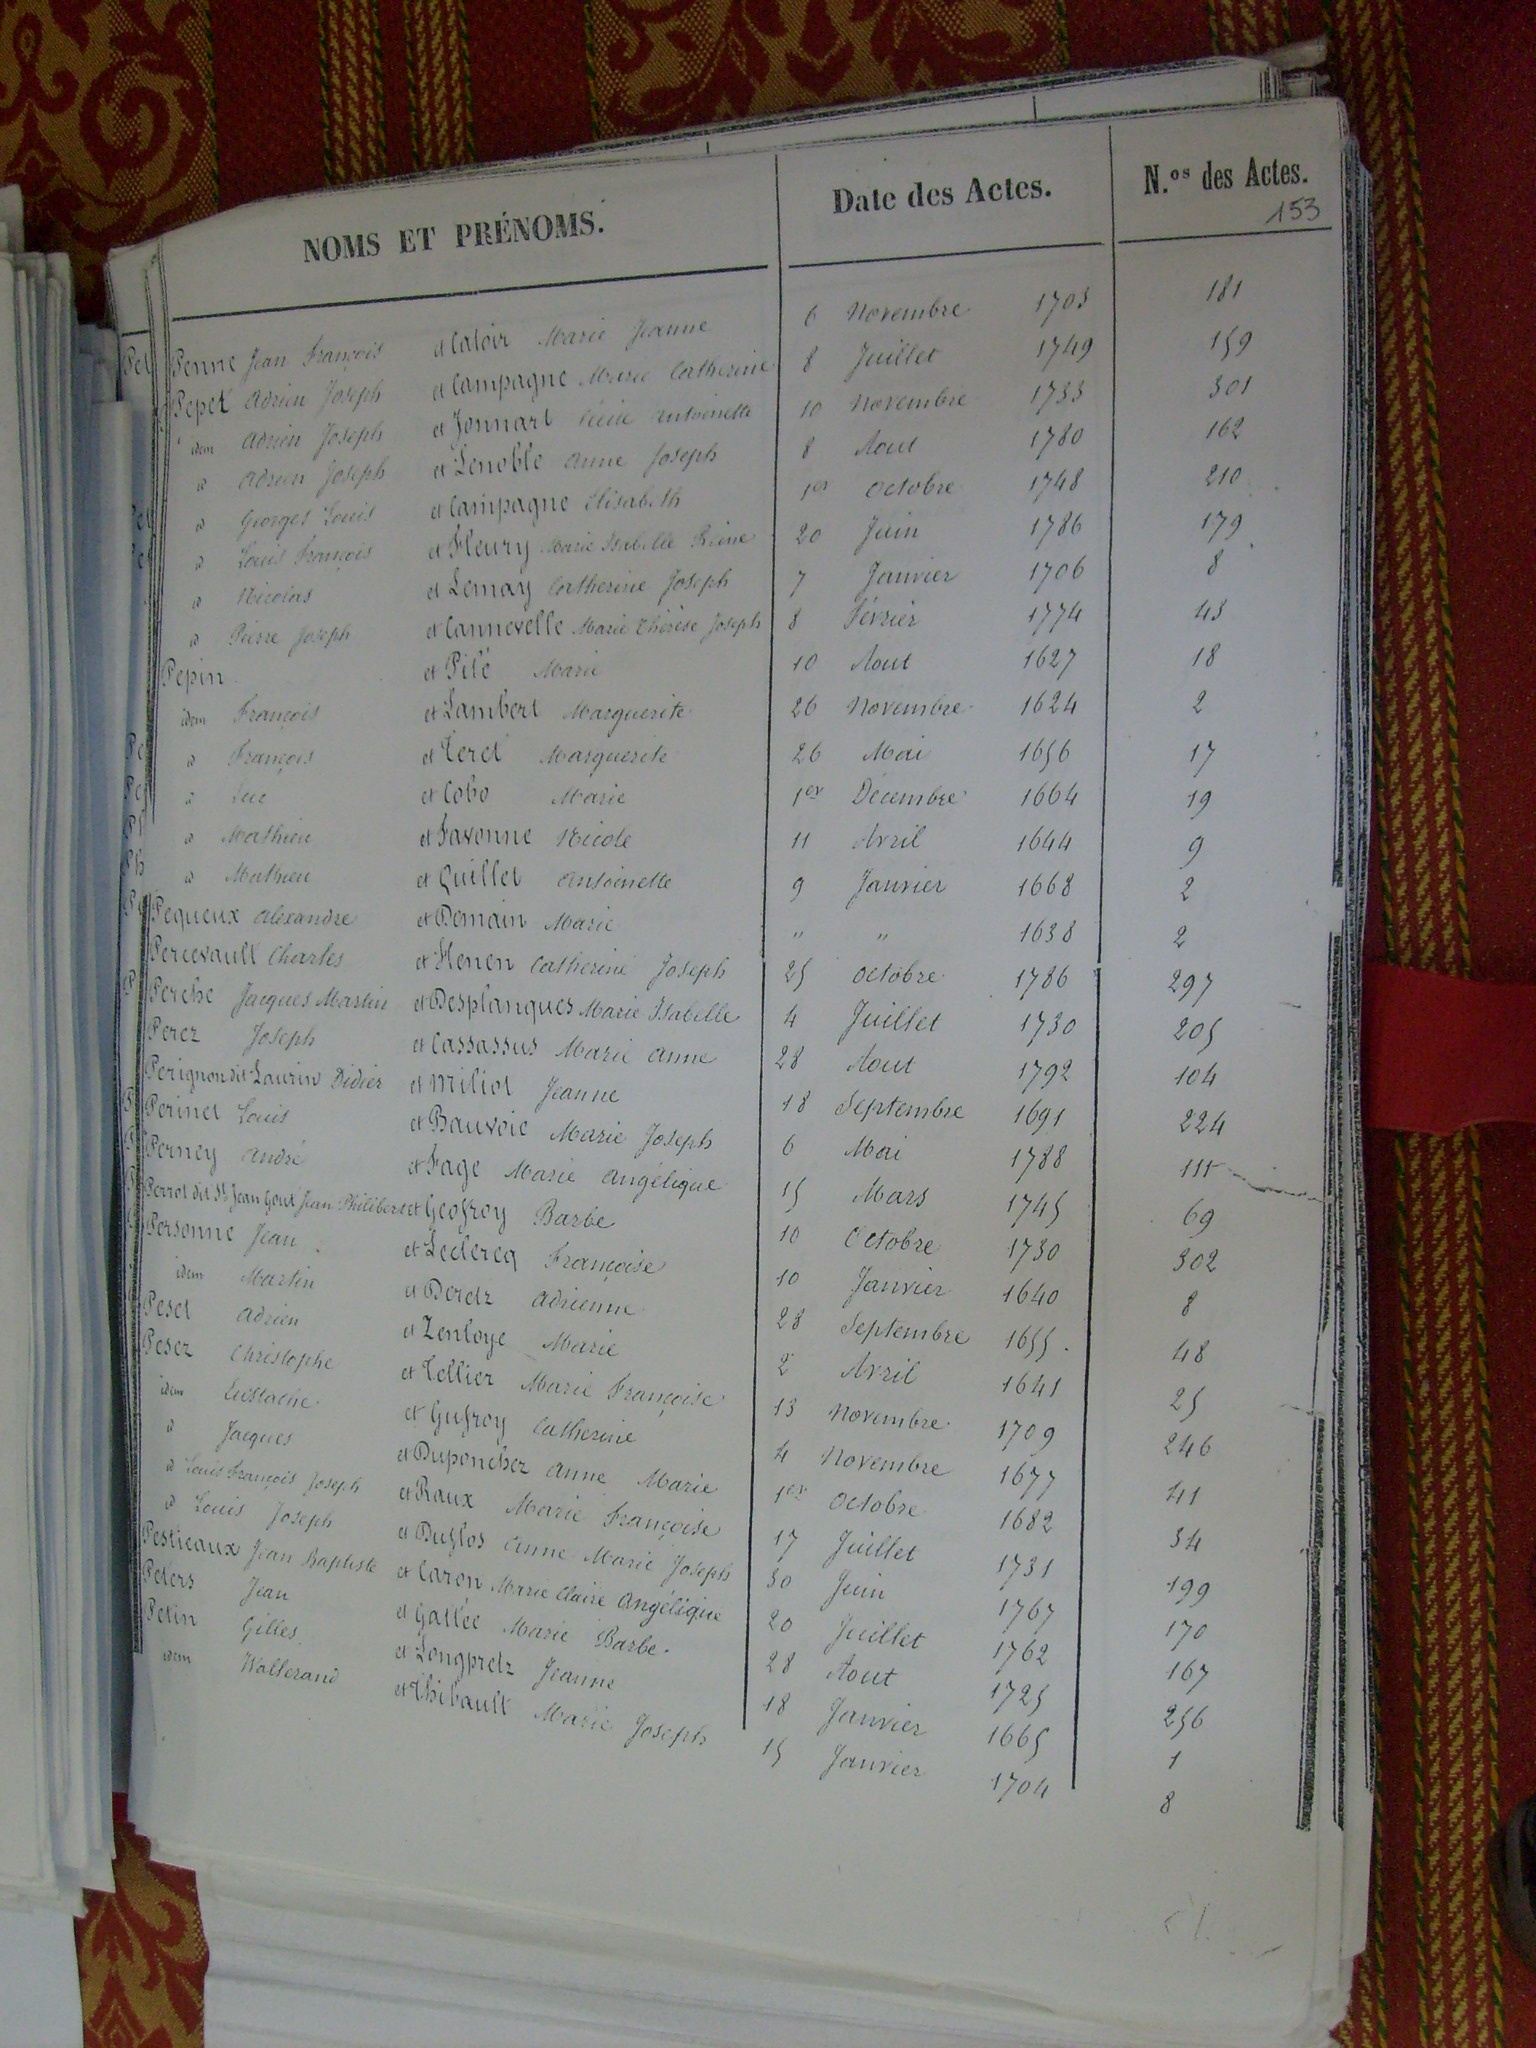 NOMS ET PRÉNOMS. Date des Actes. N.os des Actes.
153
Penne Jean François et Catoir Marie Jeanne 6 Novembre 1703 181
Pepet Adrien Joseph et Campagne Marie Catherine 8 Juillet 1749 159
idem Adrien Joseph et Jonnart Cécile Antoinette 10 Novembre 1733 301
d Adrien Joseph et Lenoble Anne Joseph 8 Aout 1780 162
d Georges Louis et Campagne Elisabeth 1er Octobre 1748 210
d Louis François et Fleury Marie Isabelle Reine 20 Juin 1786 179
d Nicolas et Lemay Catherine Joseph 7 Janvier 1706 8
d Pierre Joseph et Cannevelle Marie Thérèse Joseph 8 Février 1774 43
Pepin et Pilé Marie 10 Aout 1627 18
idem François et Lambert Marguerite 26 Novembre 1624 2
d François et Teret Marguerite 26 Mai 1656 17
d Luc et Cobo Marie 1er Décembre 1664 19
d Mathieu et Favonne Nicole 11 Avril 1644 9
d Mathieu et Quillet Antoinette 9 Janvier 1668 2
Pequeux Alexandre et Demain Marie " " 1638 2
Percevault Charles et Henen Catherine Joseph 25 Octobre 1786 297
Perche Jacques Martin et Desplanques Marie Isabelle 4 Juillet 1730 205
Perez Joseph et Cassassus Marie Anne 28 Aout 1792 104
Perignon dit Laurin Didier et Miliot Jeanne 18 Septembre 1691 224
Perinet Louis et Bauvoie Marie Joseph 6 Mai 1788 111
Perney André et Fage Marie Angélique 15 Mars 1745 69
Perrot dit St Jean Gout Jean Philibert et Geofroy Barbe 10 Octobre 1730 302
Personne Jean et Leclercq Françoise 10 Janvier 1640 8
idem Martin et Deretz Adrienne 28 Septembre 1655 48
Peset Adrien et Zenloye Marie 2 Avril 1641 25
Pesez Christophe et Tellier Marie Françoise 13 Novembre 1709 246
idem Eustache et Gufroy Catherine 4 Novembre 1677 41
d Jacques et Duponchez Anne Marie 1er Octobre 1682 34
d Louis François Joseph et Raux Marie Françoise 17 Juillet 1731 199
d Louis Joseph et Duflos Anne Marie Joseph 30 Juin 1767 170
Pestieaux Jean Baptiste et Caron Marie Claire Angélique 20 Juillet 1762 167
Peters Jean et Gallée Marie Barbe 28 Aout 1725 256
Petin Gilles et Longpretz Jeanne 18 Janvier 1665 1
idem Wallerand et Thibault Marie Joseph 15 Janvier 1704 8